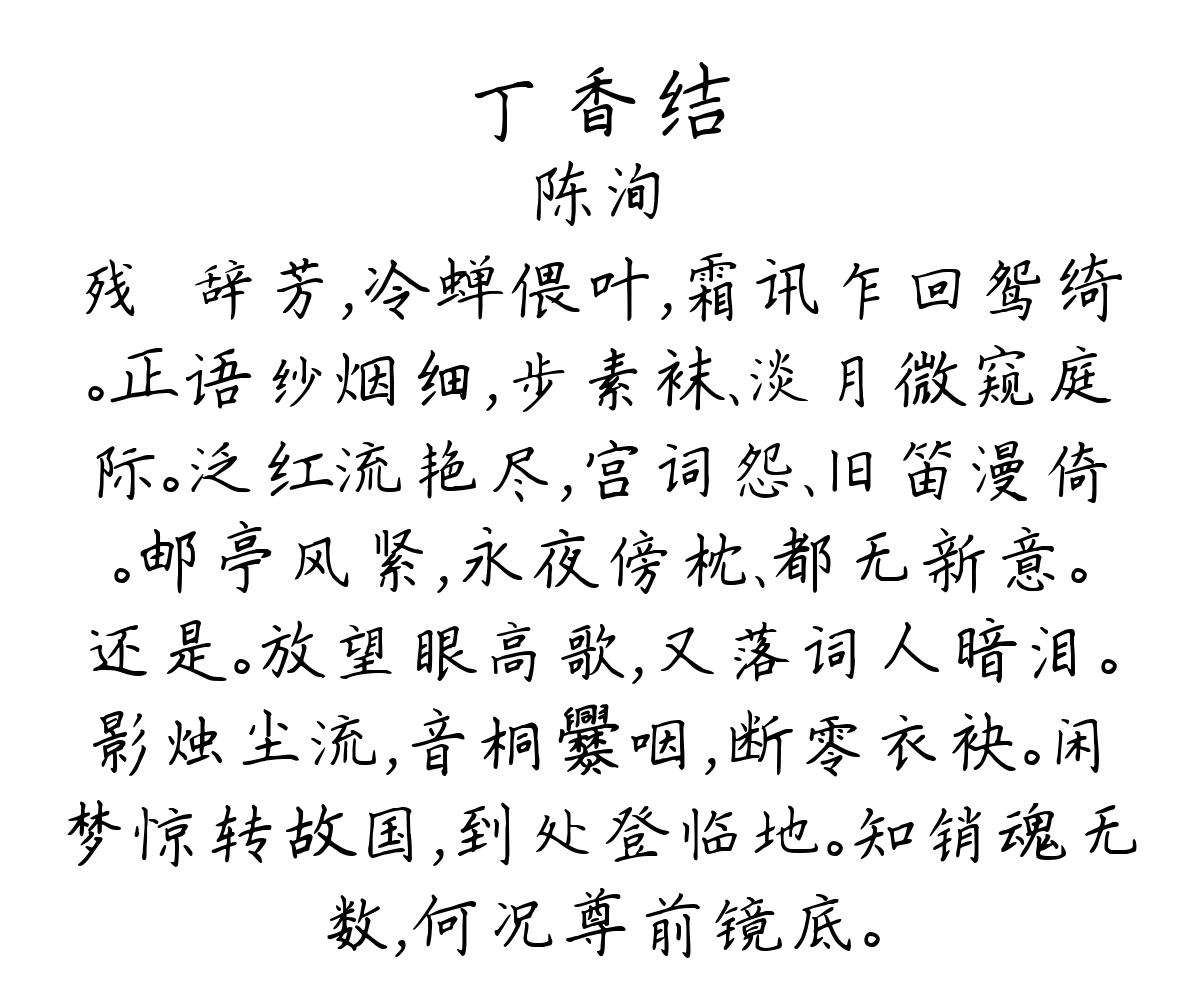 丁香结
陈洵
残 辞芳,冷蝉偎叶,霜讯乍回鸳绮
。正语纱烟细,步素袜、淡月微窥庭
际。泛红流艳尽,宫词怨、旧笛漫倚
。邮亭风紧,永夜傍枕、都无新意。
还是。放望眼高歌,又落词人暗泪。
影烛尘流,音桐爨咽,断零衣袂。闲
梦惊转故国,到处登临地。知销魂无
数,何况尊前镜底。